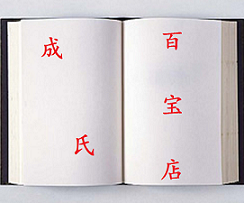 成氏
百宝店